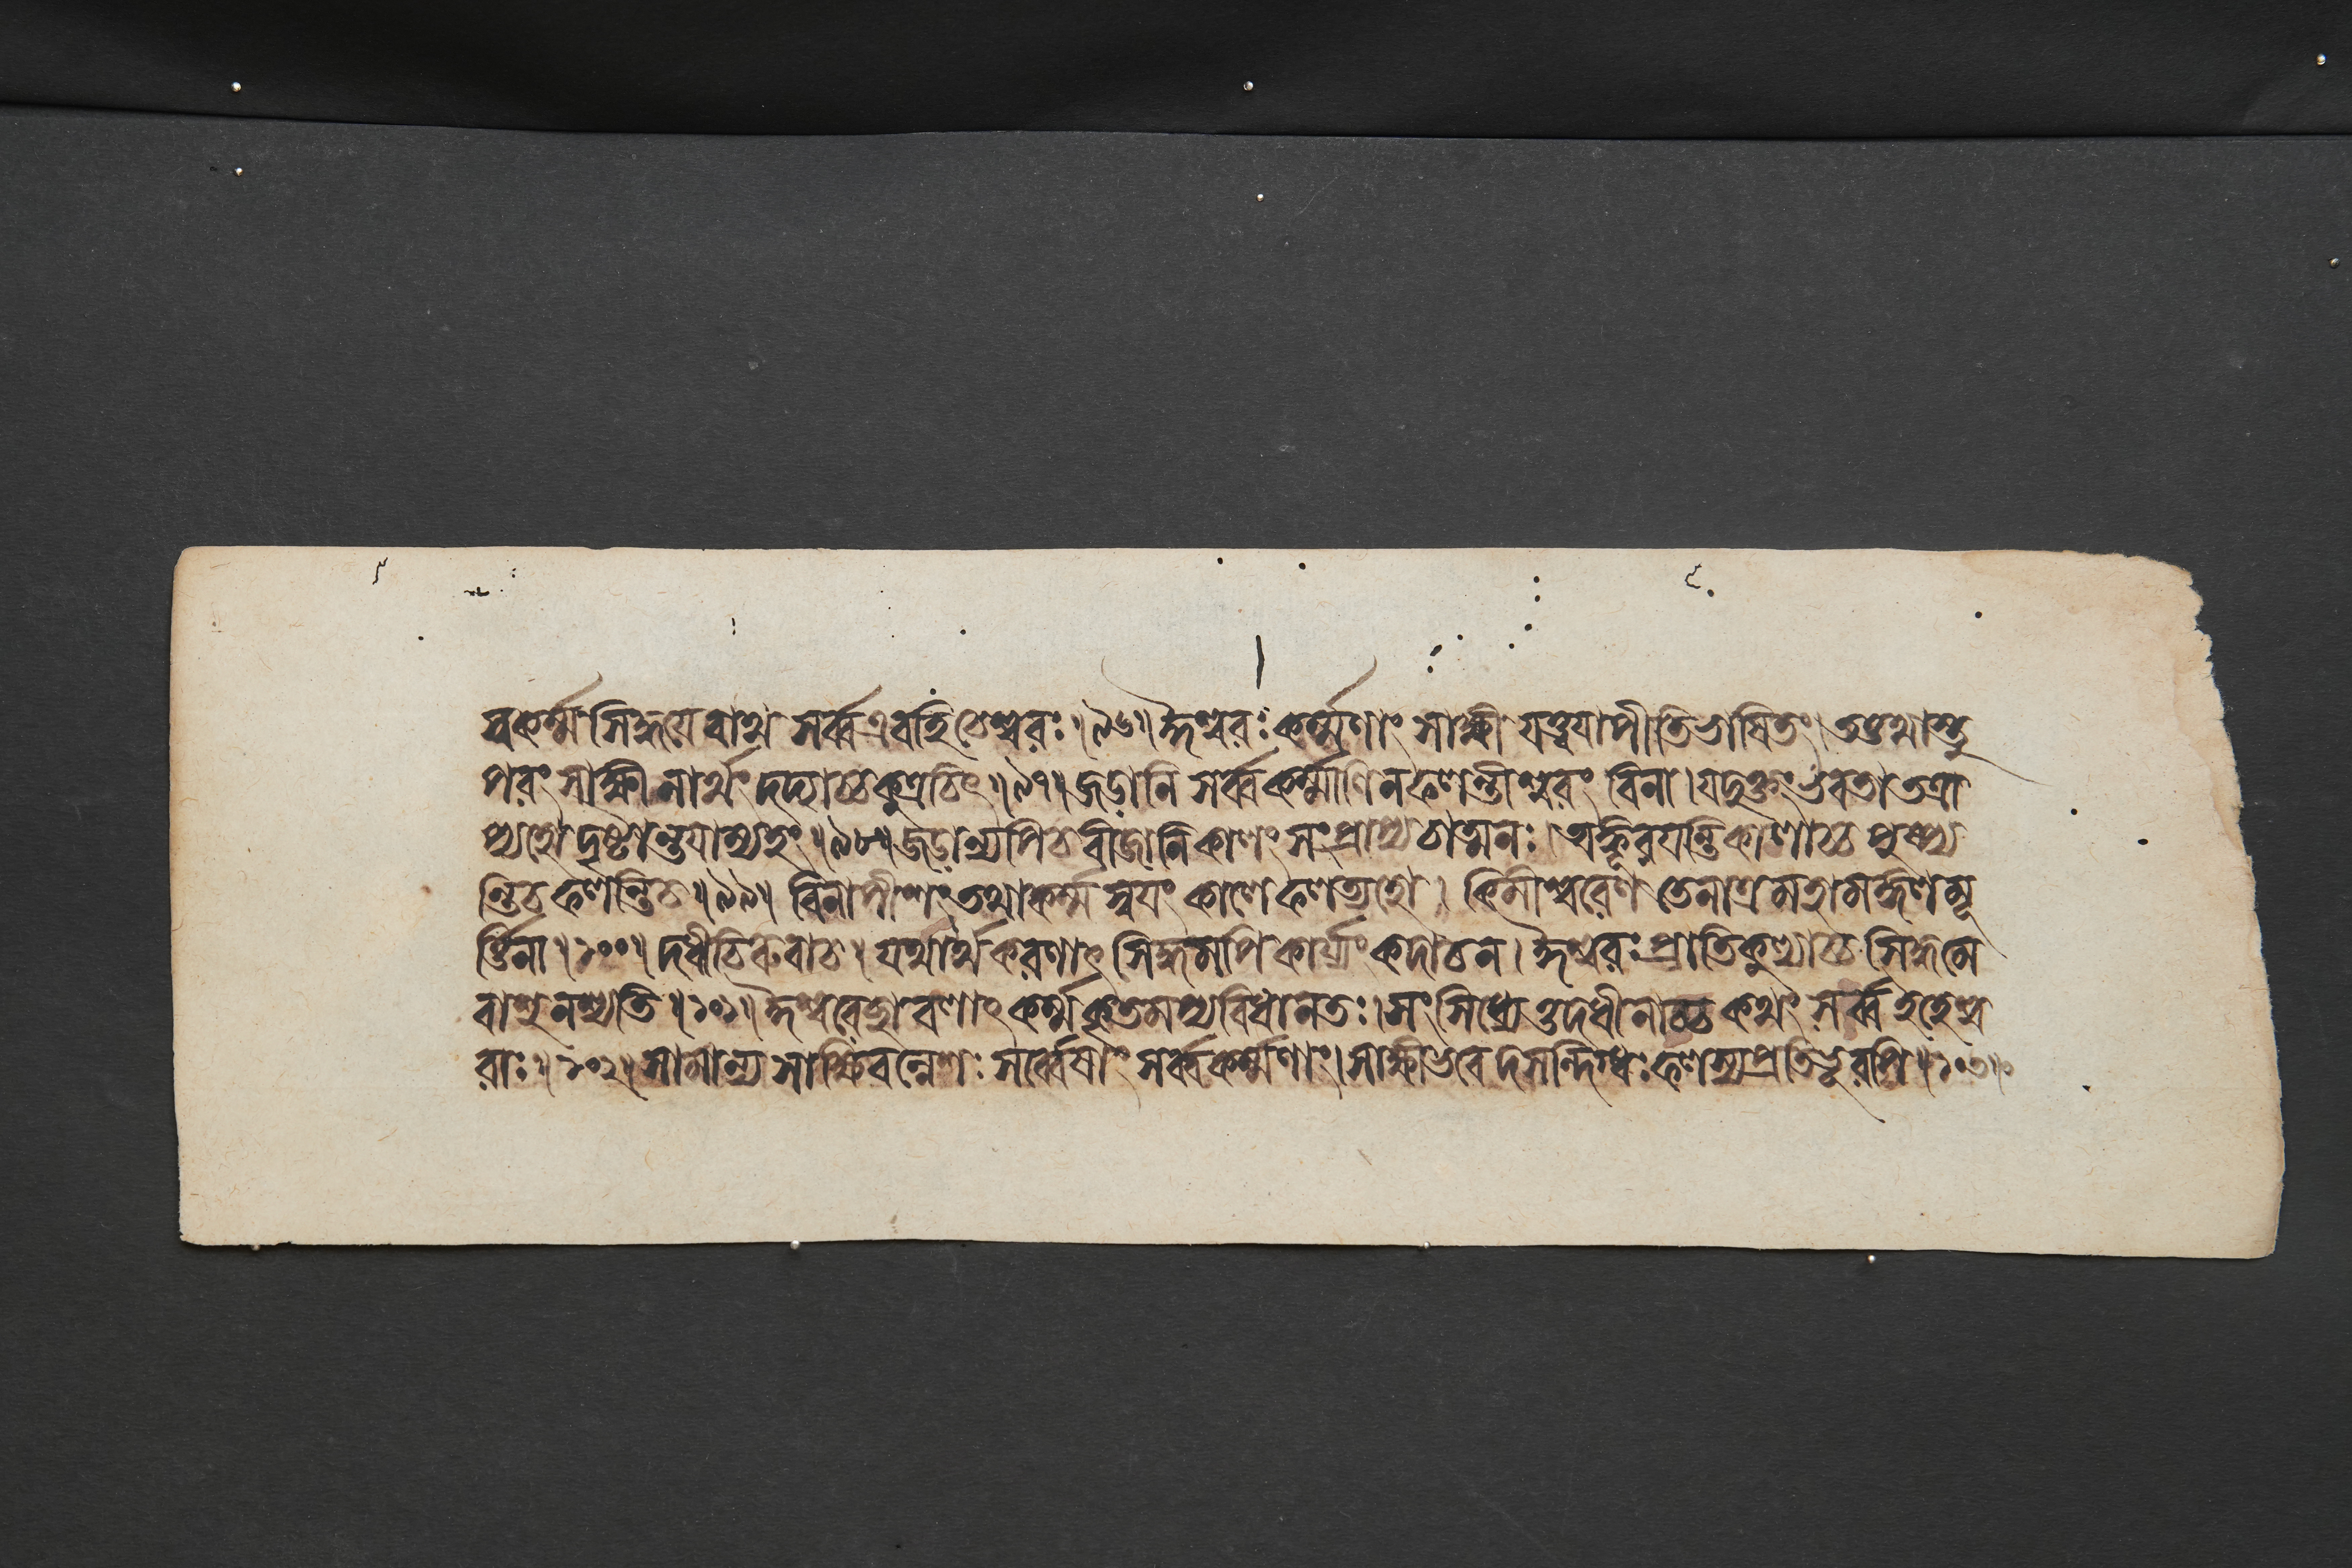 বকর্ম্মসিদ্ধয়ে বাথ সর্ব্ব এব হি চেশ্বরঃ ॥৯৬॥ ঈশ্বরঃ কর্ম্মণাং সাক্ষী যত্ত্বয়াপীতি ভাষিতং। তত্তথাস্তু
পরং সাক্ষী নার্থং দদ্যাচ্চ কুত্রচিৎ ॥৯৭॥ জডানি সর্ব্বকর্ম্মাণি ন ফলন্তীশ্বরং বিনা। যদুক্তং ভবতা তত্রা
প্যহো দৃষ্টান্তয়াম্যহং ॥৯৮॥ জডান্যপি চ বীজানি কালং সংপ্রাপ্য চাত্মনঃ। অঙ্কূরয়ন্তি কালাচ্চ পুষ্প্য
ন্তি চ ফলন্তি চ ॥৯৯॥ বিনাপীশং তথা কর্ম্ম স্বয়ং কালে ফলত্যহো। কিমীশ্বরেণ তেনাত্র মহামঙ্গলমূ
র্ত্তিনা ॥১০০॥ দধীচিরুবাচ। যথার্থকরণাৎ সিদ্ধমপি কার্য্যং কদাচন। ঈশ্বরঃ প্রাতিকুল্যাচ্চ সিদ্ধমে
বাশু নশ্যতি ॥১০১॥ ঈশ্বরেচ্ছাবলাৎ কর্ম্ম কৃতমপ্যবিধানতঃ। সংসিধ্যেত্তদধীনাচ্চ কথং সর্ব্ব ইহেশ্ব
রাঃ ॥১০২॥ সামান্যসাক্ষিবন্নেশঃ সর্ব্বেষাং সর্ব্বকর্ম্মণাং। সাক্ষী ভবেদসন্দিগ্ধঃ ফলত্যপ্রতিভূরপি ॥১০৩॥